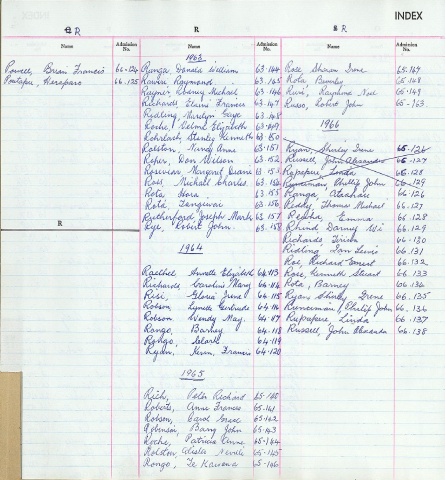 INDEX
R
R
R
Name
Admission No.
Name
Admission No.
Name
Admission No.
Powell, Brian Francis 66.124
66.125
R
1963
Ranga, Donald William 63.144
Rawiri, Raymond 63.145
Rayner, Rodney Michael 63.146
Richards, Elaine Frances 63.147
Ridling, Marilyn Gaye 63.148
Roche, Velma Elizabeth 63.149
Stanley Kenneth 63.150
Rolston, Nancy Anne 63.151
Roper, Don Wilson 63.152
Rosevear, Margaret Deane 63.153
Ross, Michael Charles 63.154
Rota, Hora 63.155
Rota, Tangiwai 63.156
Rutherford, Joseph Mark 63.157
Rye, Robert John 63.158
1964
Raethel, Annette Elizabeth 64.113
Richards, Caroline Mary 64.114
Risi, Gloria June 64.115
Robson, Lynette Gertrude 64.116
Robson, Wendy May 64.117
Rongo, Barney 64.118
Rongo, Clark 64.119
Ryan, Kevin Francis 64.120
1965
Rich, Peter Richard 65.140
Roberts, Anne Frances 65.141
Robson, Carol Grace 65.142
Robinson, Barry John 65.143
Roche, Patricia Anne 65.144
Rolston, Alista Neville 65.145
Rongo, Te Hauana 65.146
Rose, Sharon Irene 65.147
Rota, Bunty 65.148
Ruri, Raphine Noel 65.149
Russo, Robert John 65.163
1966
Ryan, Shirley Irene 65.126
Russell, John Alexander 65.127
Rupapere, Linda 65.128
Runciman, Phillip John 66.129
Ranga, Atanae 66.126
Reddy, Thomas Michael 66.127
Reupha, Emma 66.128
Rhind, Danny Wi 66.129
Richards, Trisha 66.130
Ridling, Ian Lewis 66.131
Roe, Richard Ernest 66.132
Rose, Kenneth Stuart 66.133
Rota, Barney 66.134
Ryan, Shirley Irene 66.135
Runciman, Phillip John 66.136
Rupapere, Linda 66.137
Russell, John Alexander 66.138